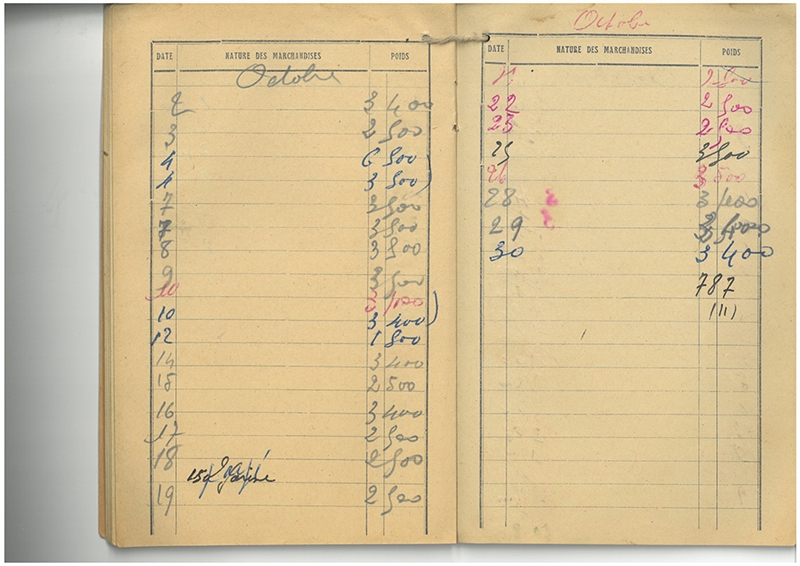 DATE NATURE DES MARCHANDISES POIDS
Octobre
2 3 400
3 2 500
4 6 500
4 3 500
7 3 500
7 3 500
8 3 500
9 3 500
10
10 3 400
12 1 500
14 3 400
15 2 500
16 3 400
17 2 500
18 2 500
19 2 500
Octobre
DATE NATURE DES MARCHANDISES POIDS
22 2 500
23 2 500
25 3 500
26 3 500
28 3 400
29
30 3 400
787
(11)